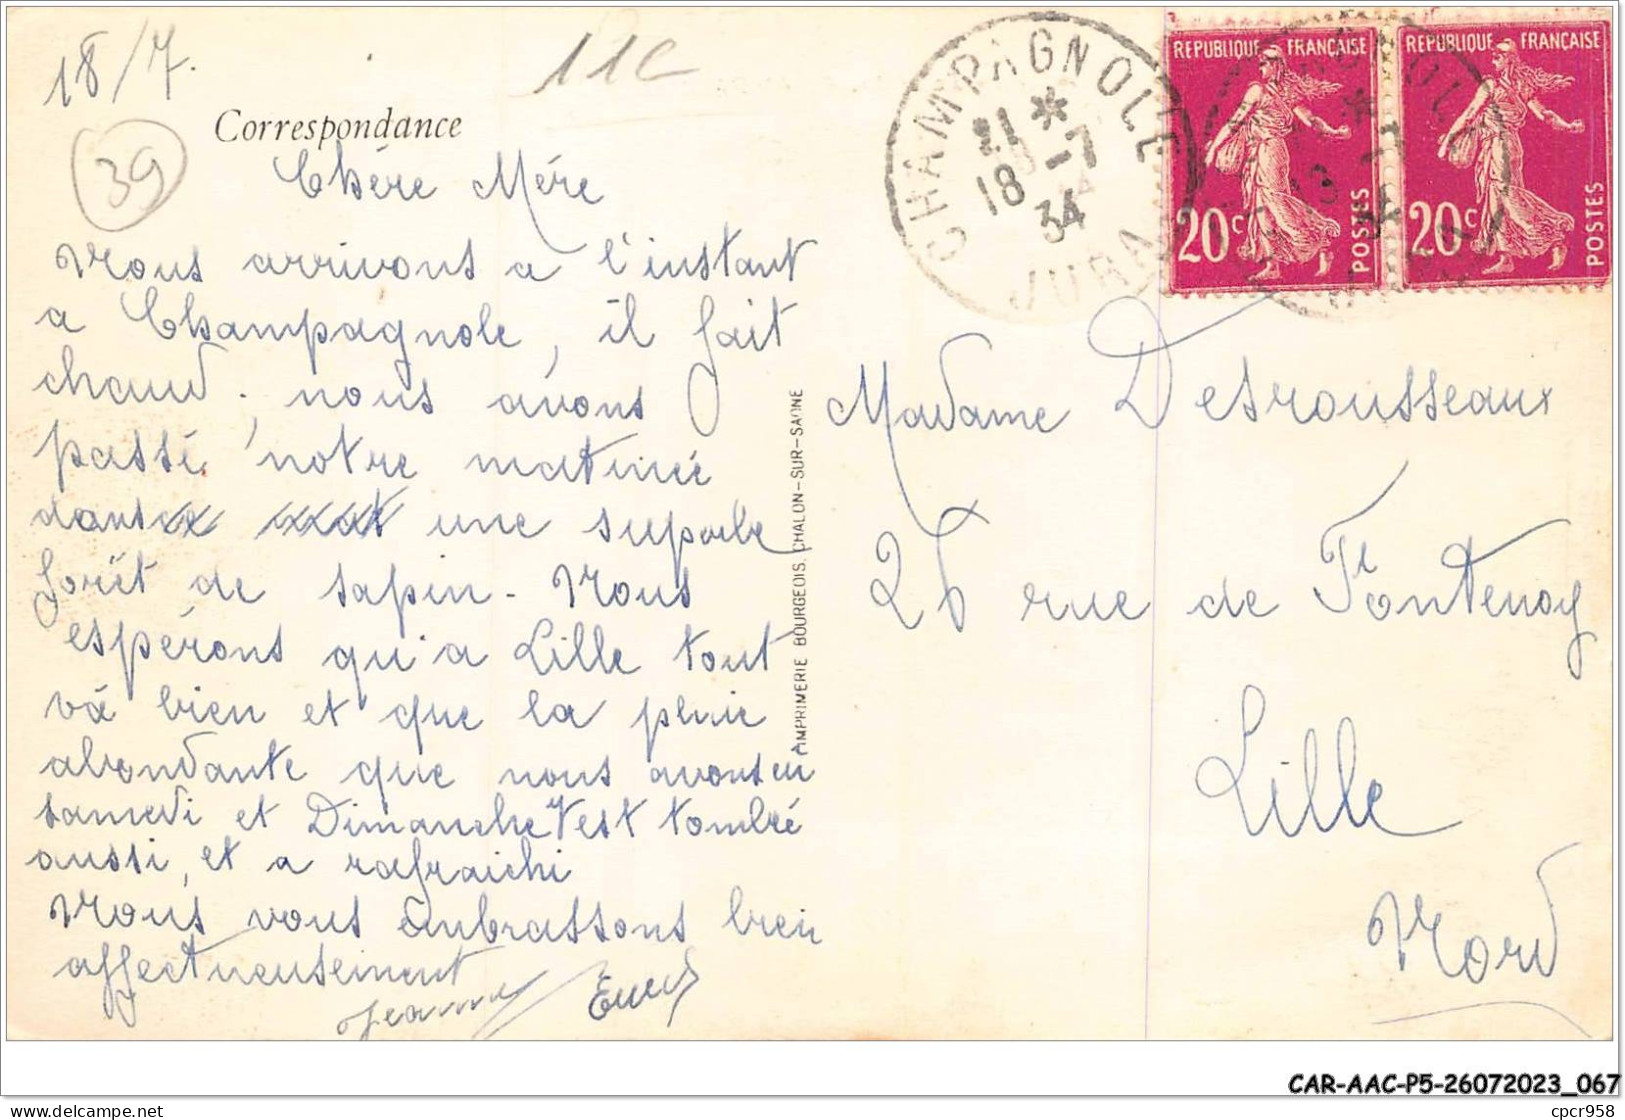 18/7.
11c
39
Correspondance
Chère Mère
Nous arrivons a l'instant
a Champagnole, il fait
chaud, nous avons
passé notre matinée
dans une superbe
forêt de sapin - Nous
espérons qu'a Lille tout
va bien et que la pluie
abondante que nous avons eu
samedi et Dimanche est tombé
aussi, et a rafraichi
Nous vous embrassons bien
affectueusement
Jeanne
IMPRIMERIE BOURGEOIS, CHALON-SUR-SAONE
CHAMPAGNOLE
21 *
18 -7
34
JURA
REPUBLIQUE FRANÇAISE
20c POSTES
REPUBLIQUE FRANÇAISE
20c POSTES
Madame Desrousseaux
26 rue de Fontenoy
Lille
Nord
CAR-AAC-P5-26072023_067
cpcr958